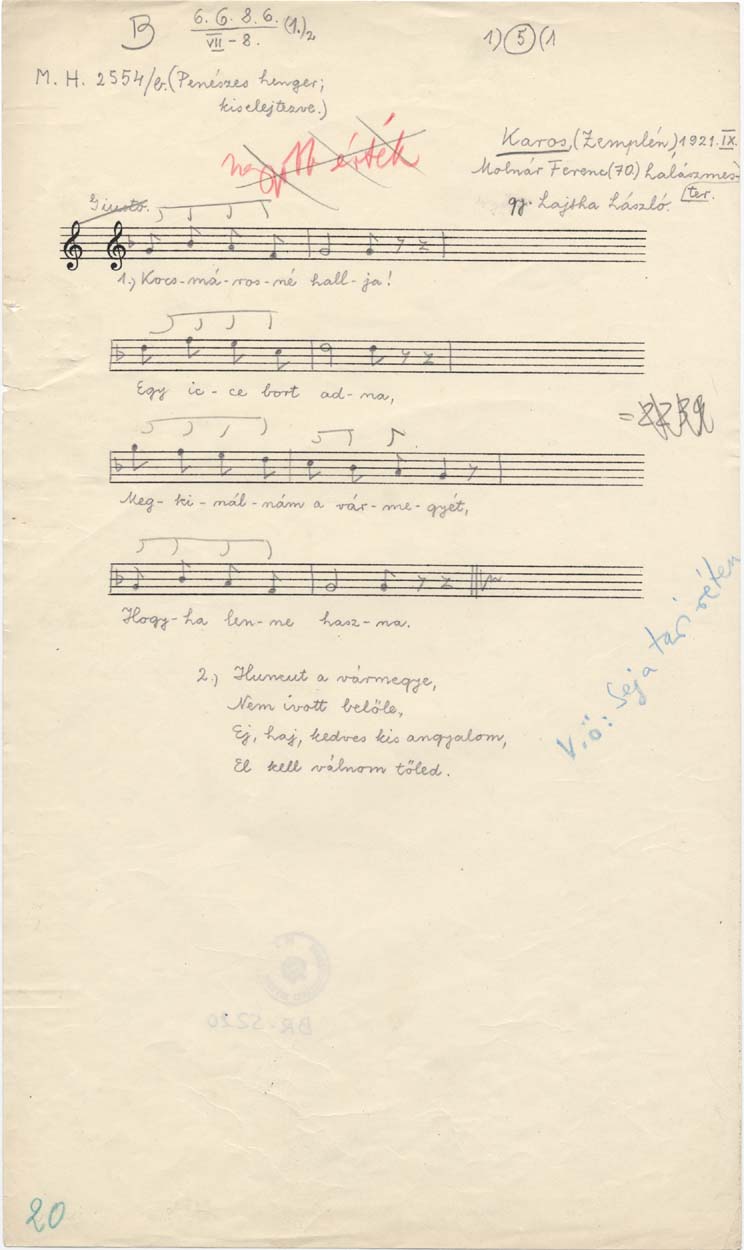 B 6. 6. 8. 6. (1.)2 1) 5 (1
VII – 8.
M. H. 2554/b. (Penészes henger;
kiselejtezve.)
érték
Karos, (Zemplén) 1921. IX.
Molnár Ferenc (70.) halászmes-
ter.
gy. Lajtha László.
Giusto.
1.) Kocs-má-ros-né hall-ja!
Egy ic-ce bort ad-na,
Meg-ki-nál-nám a vár-me-gyét,
Hogy-ha len-ne hasz-na.
2.) Huncut a vármegye,
Nem ivott belőle,
Ej, haj, kedves kis angyalom,
El kell válnom tőled.
V.ö: Séja tari réten
BR-5220
20